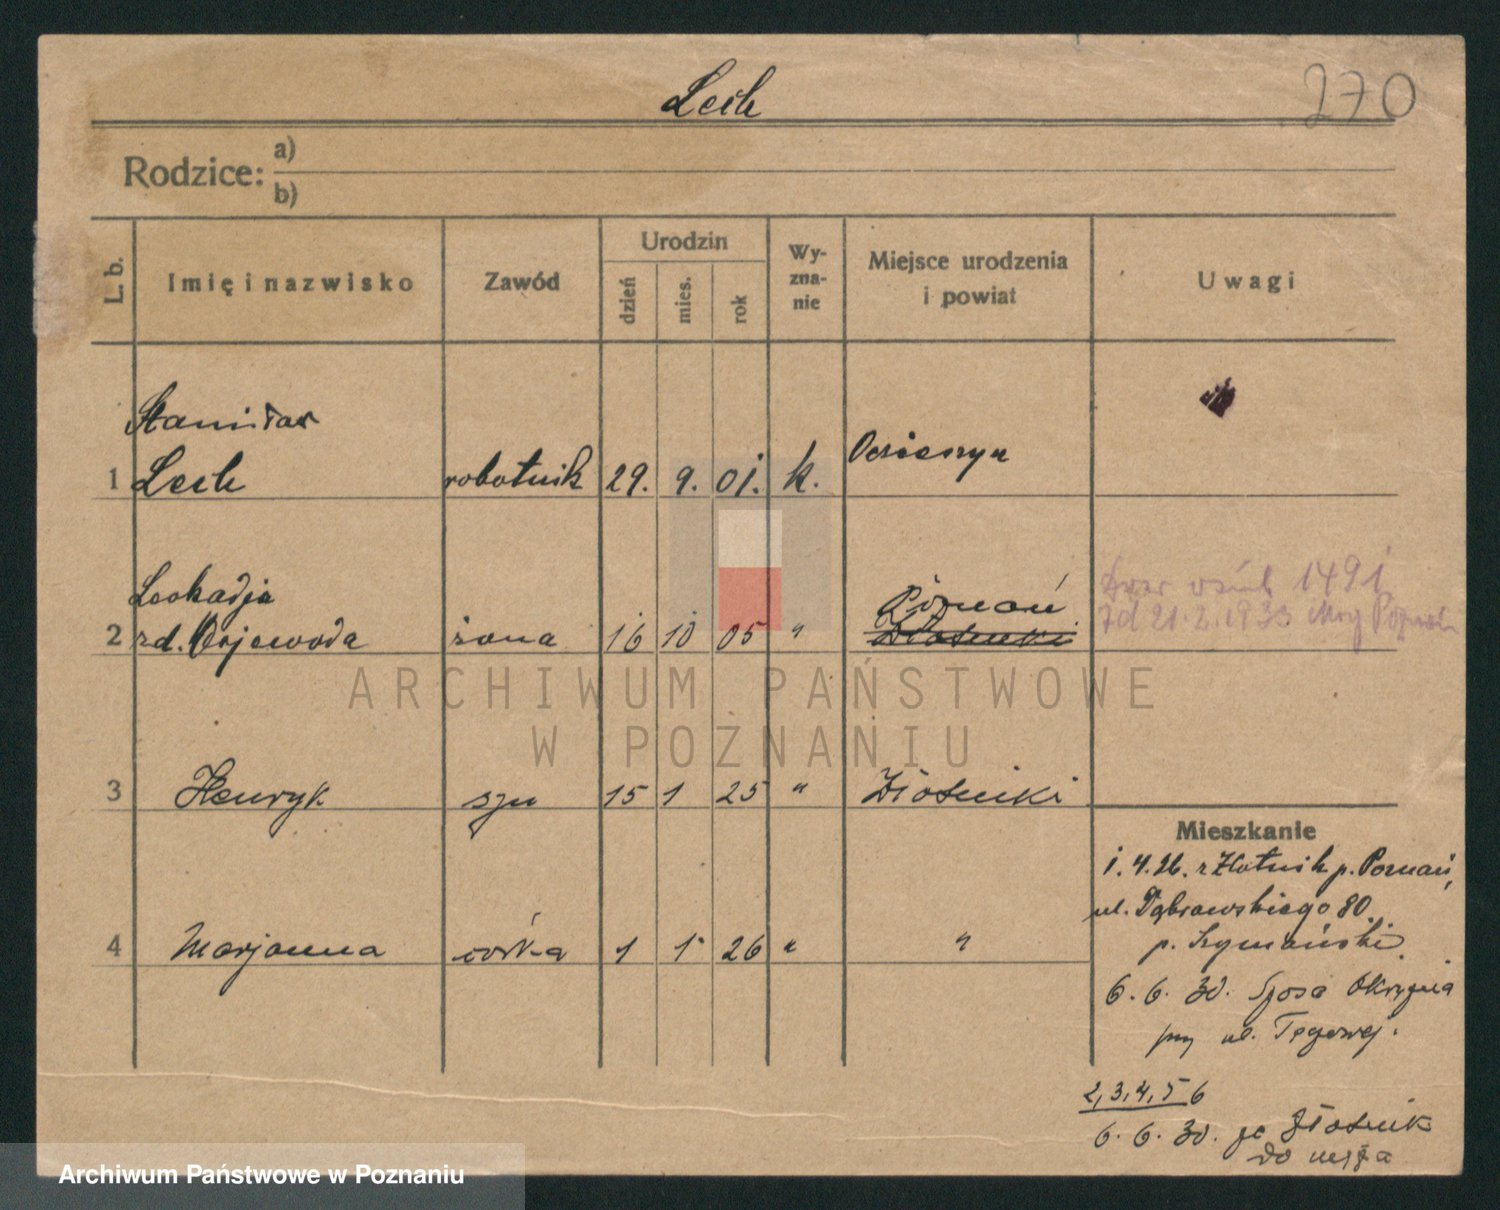 Lech
270
Rodzice: a)
b)
L. b.
Imię i nazwisko
Zawód
Urodzin
dzień
mies.
rok
Wy-
zna-
nie
Miejsce urodzenia
i powiat
Uwagi
Stanisław
1 Lech robotnik 29. 9. 01. k. Ocieszyn
Leokadja Poznań
2 zd. Wojewoda żona 16 10 05 " Złotniki
1491
21.2.1933 Poznań
3 Henryk syn 15 1 25 " Złotniki
4 Marjanna córka 1 1 26 " "
Mieszkanie
1.4.26. z Złotnik p. Poznań,
ul. Dąbrowskiego 80
p. Szymański
6.6.30. Szosa Okrężna
przy ul. Tęgowej.
2,3,4,5 6
6.6.30. ze Złotnik
do męża
ARCHIWUM PAŃSTWOWE
W POZNANIU
Archiwum Państwowe w Poznaniu